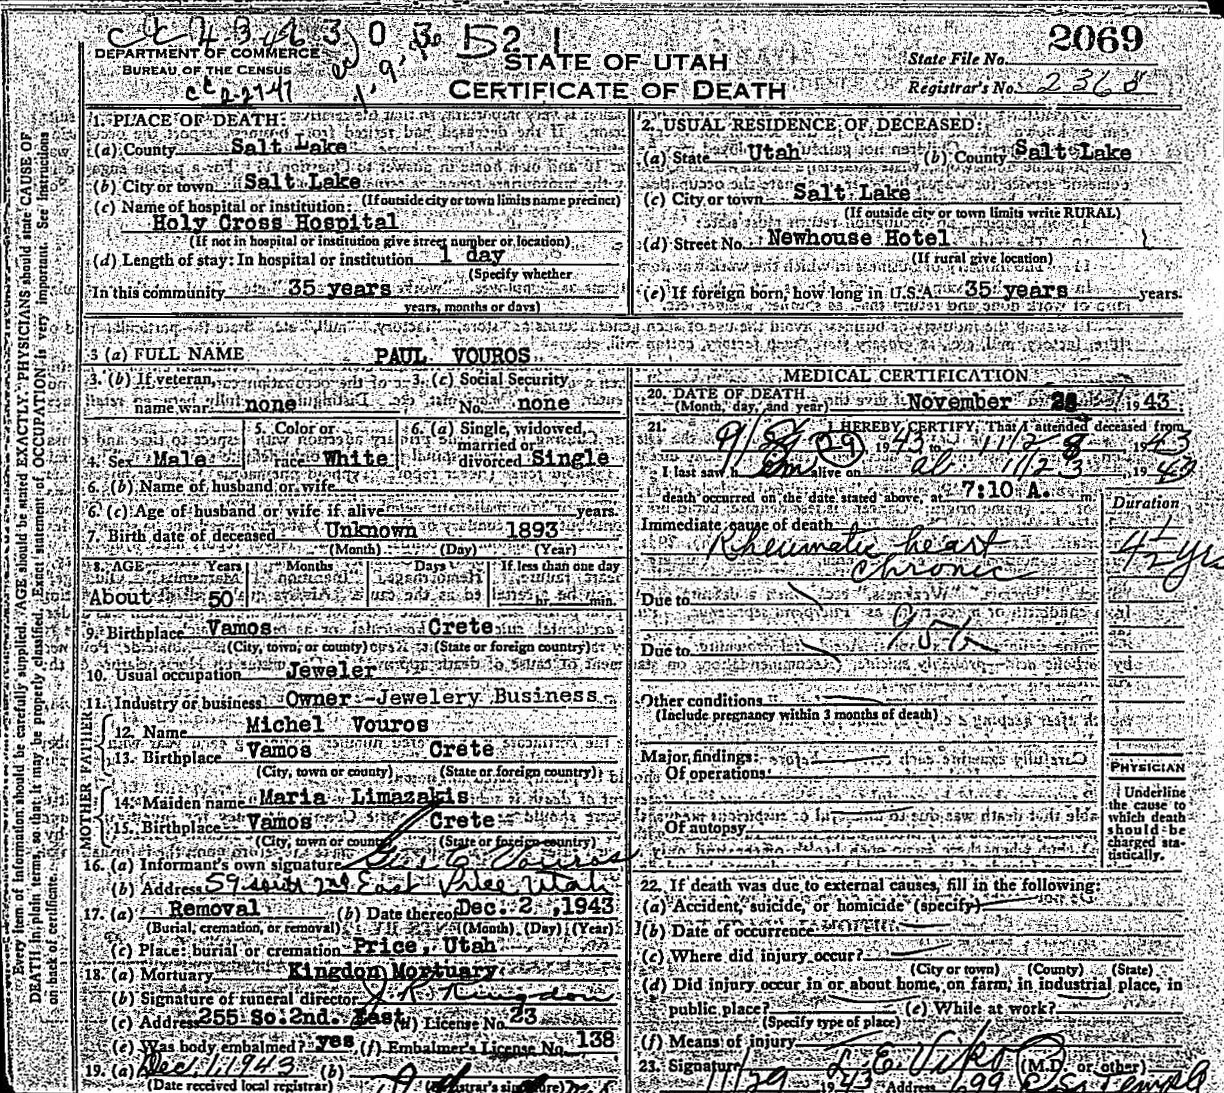 2069
DEPARTMENT OF COMMERCE
BUREAU OF THE CENSUS
STATE OF UTAH
CERTIFICATE OF DEATH
State File No.
Registrar's No.
1. PLACE OF DEATH:
(a) County Salt Lake
(b) City or town Salt Lake
(If outside city or town limits name precinct)
(c) Name of hospital or institution:
Holy Cross Hospital
(If not in hospital or institution give street number or location)
(d) Length of stay: In hospital or institution 1 day
(Specify whether
In this community 35 years
years, months or days)
2. USUAL RESIDENCE OF DECEASED:
(a) State Utah (b) County Salt Lake
(c) City or town Salt Lake
(If outside city or town limits write RURAL)
(d) Street No. Newhouse Hotel
(If rural give location)
(e) If foreign born, how long in U.S.A. 35 years years.
3 (a) FULL NAME PAUL VOUROS
3. (b) If veteran, name war none
3. (c) Social Security No. none
4. Sex Male
5. Color or race White
6. (a) Single, widowed, married or divorced Single
6. (b) Name of husband or wife
6. (c) Age of husband or wife if alive years.
7. Birth date of deceased Unknown 1893
(Month) (Day) (Year)
8. AGE Years Months Days If less than one day
About 50 hr. min.
9. Birthplace Vamos Crete
(City, town, or county) (State or foreign country)
10. Usual occupation Jeweler
11. Industry or business Owner -Jewelery Business-
FATHER
12. Name Michel Vouros
13. Birthplace Vamos Crete
(City, town or county) (State or foreign country)
MOTHER
14. Maiden name Maria Limazakis
15. Birthplace Vamos Crete
(City, town or county) (State or foreign country)
16. (a) Informant's own signature Vouros
(b) Address 59 south 2nd East Price Utah
17. (a) Removal (b) Date thereof Dec. 2 ,1943
(Burial, cremation, or removal) (Month) (Day) (Year)
(c) Place: burial or cremation Price, Utah
18. (a) Mortuary Kingdon Mortuary
(b) Signature of funeral director Kingdon
(c) Address 255 So. 2nd. East (d) License No. 23
(e) Was body embalmed? yes (f) Embalmer's License No. 138
19. (a) Dec 1, 1943 (b)
(Date received local registrar) (Registrar's signature)
MEDICAL CERTIFICATION
20. DATE OF DEATH
(Month, day, and year) November 28 1943.
21. I HEREBY CERTIFY, That I attended deceased from
1943 to 11/28 1943
I last saw him alive on 11/23, 1943
death occurred on the date stated above, at 7:10 A. m.
Duration
Immediate cause of death
Rheumatic heart
chronic
4 1/2 yrs
Due to
Due to
Other conditions
(Include pregnancy within 3 months of death)
Major findings:
Of operations
Of autopsy
PHYSICIAN
Underline the cause to which death should be charged statistically.
22. If death was due to external causes, fill in the following:
(a) Accident, suicide, or homicide (specify)
(b) Date of occurrence
(c) Where did injury occur?
(City or town) (County) (State)
(d) Did injury occur in or about home, on farm, in industrial place, in
public place? (e) While at work?
(Specify type of place)
(f) Means of injury
23. Signature L. E. Viko (M.D. or other)
11/29 1943 Address 699 E. So. Temple
Every item of information should be carefully supplied. AGE should be stated EXACTLY. PHYSICIANS should state CAUSE OF
DEATH in plain terms, so that it may be properly classified. Exact statement of OCCUPATION is very important. See instructions
on back of certificate.